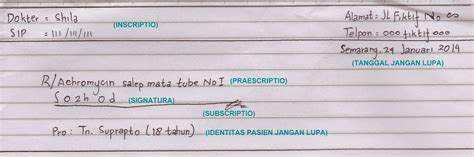 Dokter : Shila
SIP : 111/111/111
(INSCRIPTIO)
Alamat : Jl Fiktif No 00
Telpon : 000 fiktif 000
Semarang, 24 Januari 2014
(TANGGAL JANGAN LUPA)
R/ Achromycin salep mata tube No I (PRAESCRIPTIO)
S o 2 h O d (SIGNATURA)
(SUBSCRIPTIO)
Pro : Tn. Suprapto (18 tahun) (IDENTITAS PASIEN JANGAN LUPA)